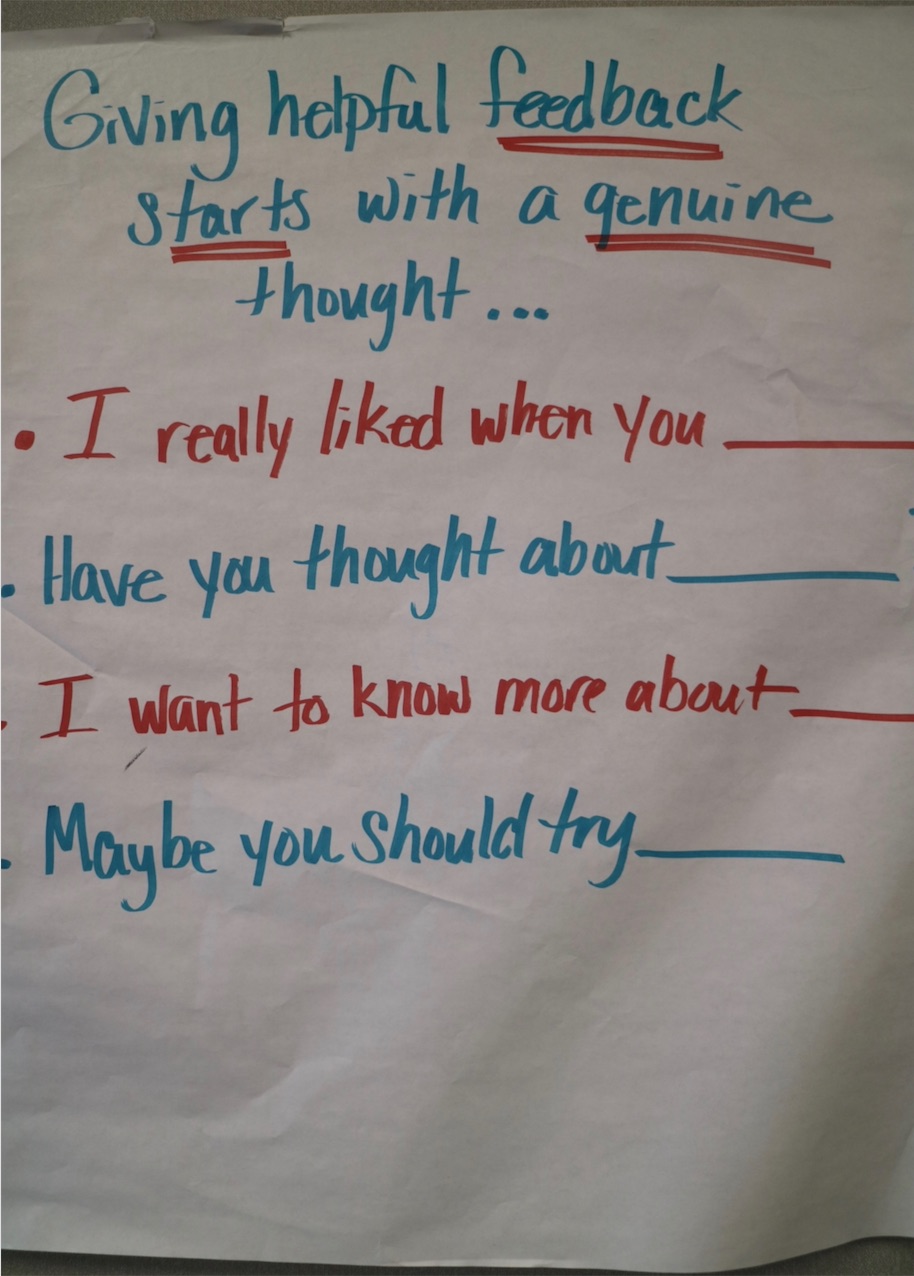 Giving helpful feedback
starts with a genuine
thought...
• I really liked when you ______
• Have you thought about ______
• I want to know more about ______
• Maybe you should try ______